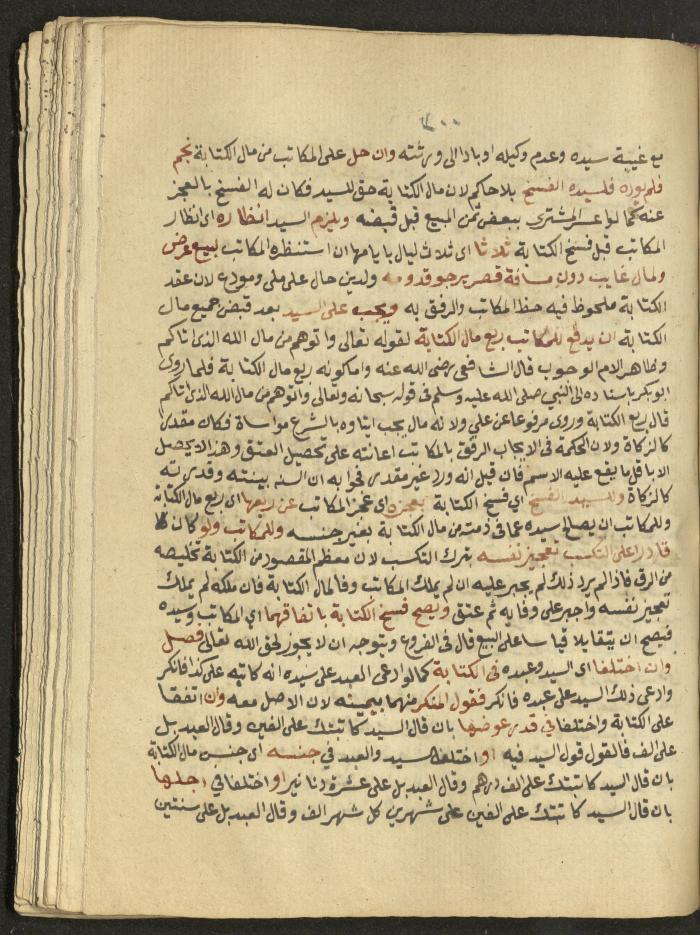 مع غيبة سيده وعدم وكيله او باذا الى ورثته وان حل على المكاتب من مال الكتابة نجم
فلم يوده فلسيده الفسخ بلا حاكم لان مال الكتابة حق للسيد فكان له الفسخ بالعجز
عنه كما لو اعسر المشترى ببعض ثمن المبيع قبل قبضه ويلزم السيد انظاره اى انظار
المكاتب قبل فسخ الكتابة ثلاثا اى ثلاث ليال بايامها ان استنظره المكاتب لبيع عرض
ولمال غايب دون مسافة قصر يرجو قدومه ولدين حال على ملى ومودع لان عقد
الكتابة ملحوظ فيه حظ المكاتب والرفق به ويجب على السيد بعد قبض جميع مال
الكتابة ان يدفع للمكاتب ربع مال الكتابة لقوله تعالى واتوهم من مال الله الذى اتاكم
وظاهر الامر الوجوب قال الشافعى رضى الله عنه واما كونه ربع مال الكتابة فلما روى
ابو بكر باسناده الى النبي صلى الله عليه وسلم فى قوله سبحانه وتعالى واتوهم من مال الله الذى اتاكم
قال ربع الكتابة وروى مرفوعا عن علي ولانه مال يجب ايتاوه بالشرع مواساة فكان مقدرا
كالزكاة ولان الحكمة فى الايجاب الرفق بالمكاتب اعانته على تحصيل العتق وهذا لا يحصل
الا باقل ما يقع عليه الاسم فان قيل انه ورد غير مقدر فجوابه ان السنه بينته وقدرته
كالزكاة وللسيد الفسخ اي فسخ الكتابة بعجزه اى عجز المكاتب عن ربعها اى ربع مال الكتابة
وللمكاتب ان يصالح سيده عما فى ذمته من مال الكتابة بغير جنسه وللمكاتب ولو كان
قادرا على التكسب تعجيز نفسه بترك التكسب لان معظم المقصود من الكتابة تخليصه
من الرق فاذا لم يرد ذلك لم يجبر عليه ان لم يملك المكاتب وفا لمال الكتابة فان ملكه لم يملك
تعجيز نفسه واجبر على وفايه ثم عتق ويصح فسخ الكتابة باتفاقهما اي المكاتب وسيده
فيصح ان يتقايلا قياسا على البيع قال فى الفروع ويتوجه ان لا يجوز لحق الله تعالى فصل
وان اختلفا اى السيد وعبده فى الكتابة كما لو ادعى العبد على سيده انه كاتبه على كذا فانكر
وادعى ذلك السيد على عبده فانكر فقول المنكر منهما بيمينه لان الاصل معه وان اتفقا
على الكتابة واختلفا في قدر عوضها بان قال السيد كاتبتك على الفين وقال العبد بل
على الف فالقول قول السيد فيه او اختلف السيد والعبد في جنسه اى جنس مال الكتابة
بان قال السيد كاتبتك على الف درهم وقال العبد بل على عشرة دنانير او اختلفا في اجلها
بان قال السيد كاتبتك على الفين على شهرين كل شهر الف وقال العبد بل على سنتين